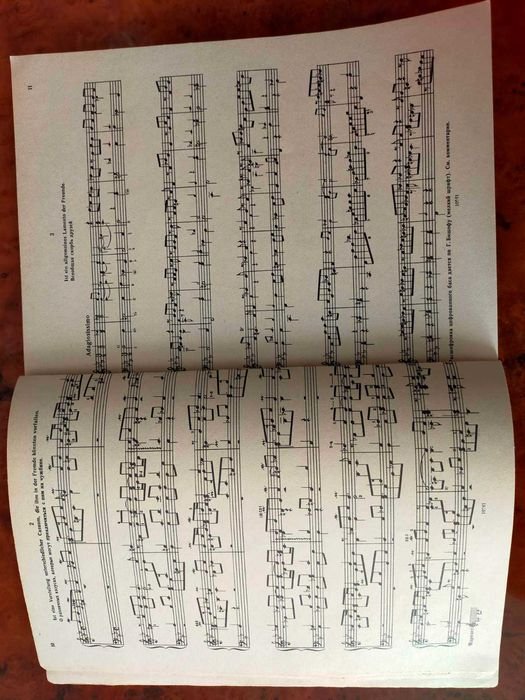 10
2
Ist eine Vorstellung unterschiedlicher Casuum, die ihm in der Fremde könnten vorfallen.
О различных казусах, которые могут приключиться с ним на чужбине.
10731
11
3
Ist ein allgemeines Lamento der Freunde.
Всеобщая скорбь друзей.
Adagiosissimo
Расшифровка цифрованного баса дается по Г. Бишофу (мелкий шрифт). См. комментарии.
10731